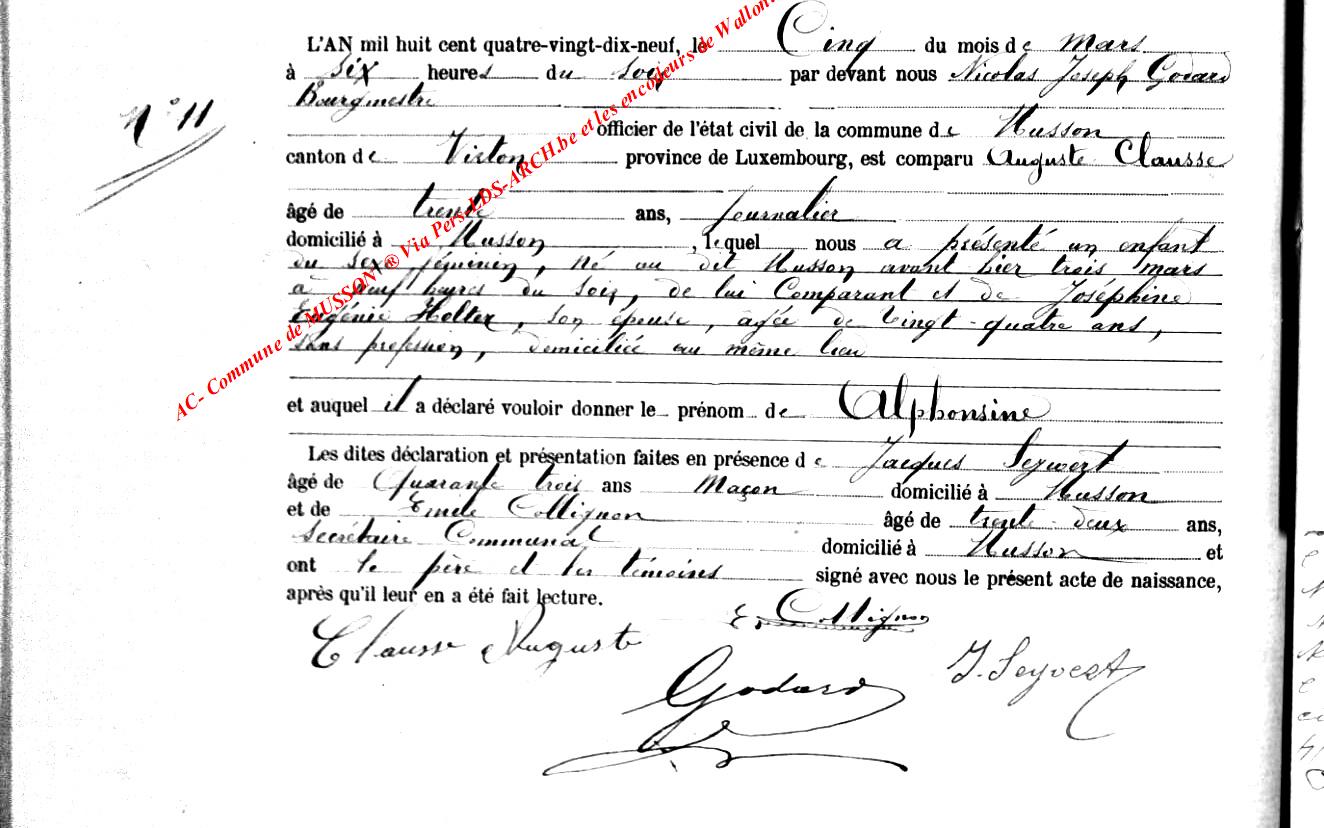 L'AN mil huit cent quatre-vingt-dix-neuf, le Cinq du mois de Mars
à Six heures du soir par devant nous Nicolas Joseph Godard
Bourgmestre
N° 11
officier de l'état civil de la commune de Musson
canton de Virton province de Luxembourg, est comparu Auguste Clausse
âgé de trente ans, journalier
domicilié à Musson, lequel nous a présenté un enfant
du sexe féminin, né au dit Musson avant hier trois mars
à neuf heures du soir, de lui Comparant et de Joséphine
Eugénie Holter, son épouse, agée de vingt-quatre ans,
sans profession, domiciliée au même lieu
et auquel il a déclaré vouloir donner le prénom de Alphonsine
Les dites déclaration et présentation faites en présence de Jacques Seywert
âgé de Quarante trois ans Maçon domicilié à Musson
et de Emile Collignon âgé de trente-deux ans,
Secrétaire Communal domicilié à Musson et
ont le père et les témoins signé avec nous le présent acte de naissance,
après qu'il leur en a été fait lecture.
E Collignon
Clausse Auguste
J. Seywert
Godard
AC- Commune de MUSSON ® Via Pers-LDS-ARCH.be et les encodeurs de Wallon